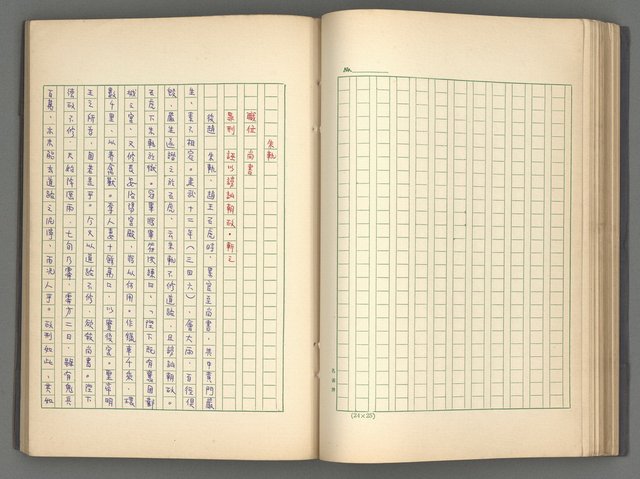 朱軌
職位　尚書
暴刑　誤以謗訕朝政，斬之
後趙　朱軌，趙王石虎時，累官至尚書，與中黃門嚴
生，素不相容。建武十二年（三四六），會大雨，百徑俱
毀，嚴生遂譖之於石虎，云朱軌不修道路，且謗訕朝政。
石虎下朱軌於獄。冠軍將軍苻洪諫曰：「陛下既有襄國鄴
城之宮，又修長安洛陽宮殿，將以何用。作獵車千乘，環
數千里，以養禽獸。奪人妻女十餘萬口，以實後宮。聖帝明
王之所為，固若是乎。今又以道路不修，欲殺尚書。陛下
德政不修，天降淫雨，七旬乃霽，霽方二日，雖有鬼兵
百萬，亦未能去道路之泥濘，而況人乎。政刑如此，其如
No.
(24×25)